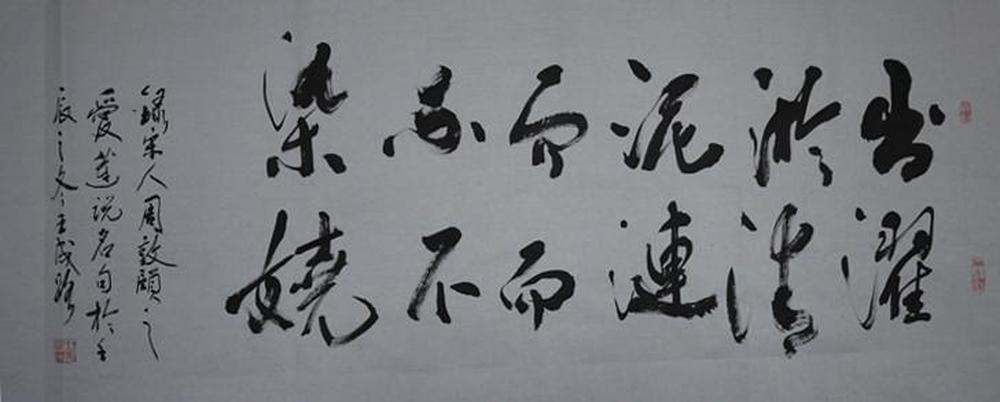 出淤泥而不染
濯清漣而不嬈
錄宋人周敦頤之
愛蓮说名句於壬
辰之冬王成